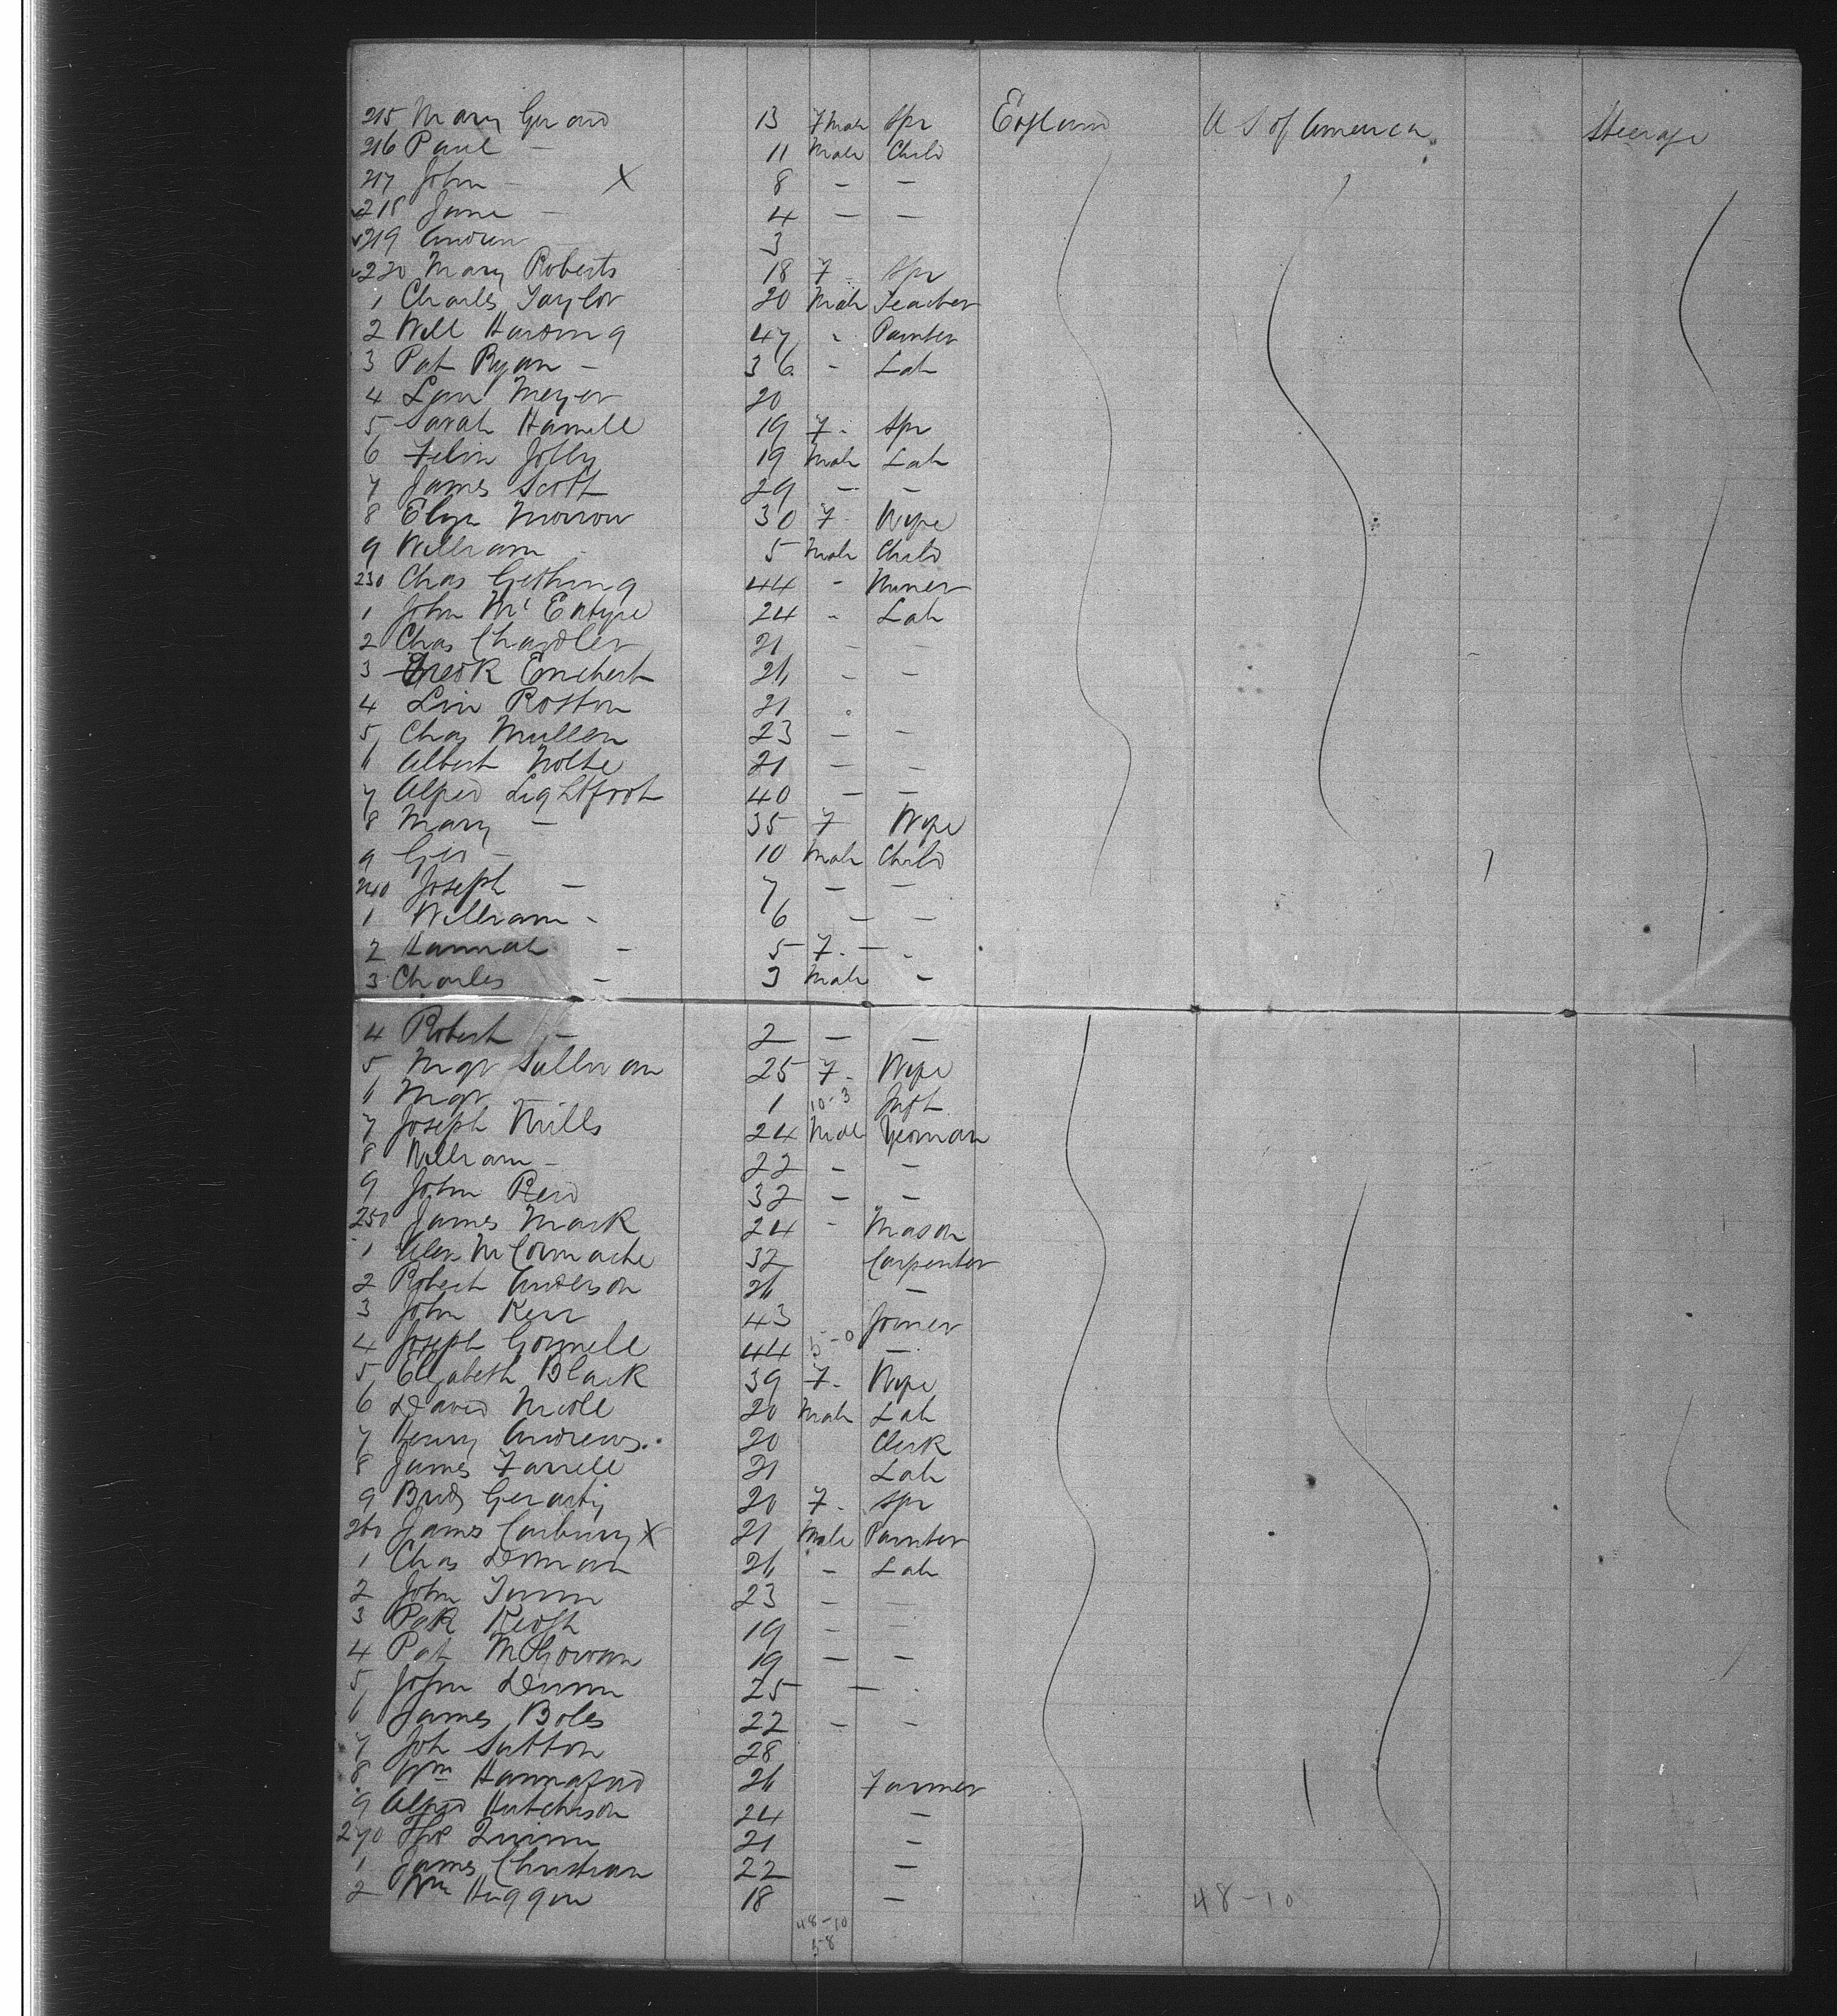 215 Mary Gerard 13 Fmale Spr England U S of America Steerage
216 Paul - 11 Male Child
217 John - X 8 - -
218 Jane - 4 - -
219 Andrew 3
220 Mary Roberts 18 F. Spr
1 Charles Taylor 20 Male Teacher
2 Will Harding 47 - Painter
3 Pat Ryan - 36 - Lab
4 Meyer 20
5 Sarah Hamell 19 F. Spr
6 Jolly 19 Male Lab
7 James Scott 29 - -
8 Eliza Morrow 30 F. Wife
9 William - 5 Male Child
230 Chas Gething 44 - Miner
1 John McEntyre 24 - Lab
2 Chas Chandler 21 - -
3 Fredk 26 - -
4 21
5 Chas Mullen 23 - -
6 Albert Nolte 21 - -
7 Alfred Lightfoot 40 - -
8 Mary - 35 F Wife
9 Geo - 10 Male Child
240 Joseph - 7 - -
1 William - 6 - -
2 Hannah - 5 F. -
3 Charles - 3 Male -
4 Robert - 2 - -
5 Mgt Sullivan 25 F. Wife
6 Mgt - 1 10-3 Inft
7 Joseph Mills 24 Male Yeoman
8 William - 22 - -
9 John Reid 32 - -
250 James Mack 24 - Mason
1 Alex McCormache 32 Carpenter
2 Robert Anderson 26 -
3 John Kerr 43 Joiner
4 Joseph Gormell 44 -
5 Elizabeth Black 39 F. Wife
6 David Nicoll 20 Male Lab
7 Henry Andrews 20 Clerk
8 James Farrell 21 Lab
9 Bridg Geraty 20 F. Spr
260 James Carbury X 21 Male Painter
1 Chas 26 - Lab
2 John 23 - -
3 Patk Keogh 19 - -
4 Pat McGowan 19 - -
5 John Dunn 25 -
6 James Boles 22 - -
7 Joh Sutton 28
8 Wm Hannaford 26 Farmer
9 Alfred Hutchison 24 -
270 Thos Quinn 21 -
1 James Christian 22 -
2 Wm Huggon 18 -
48-10 48-10